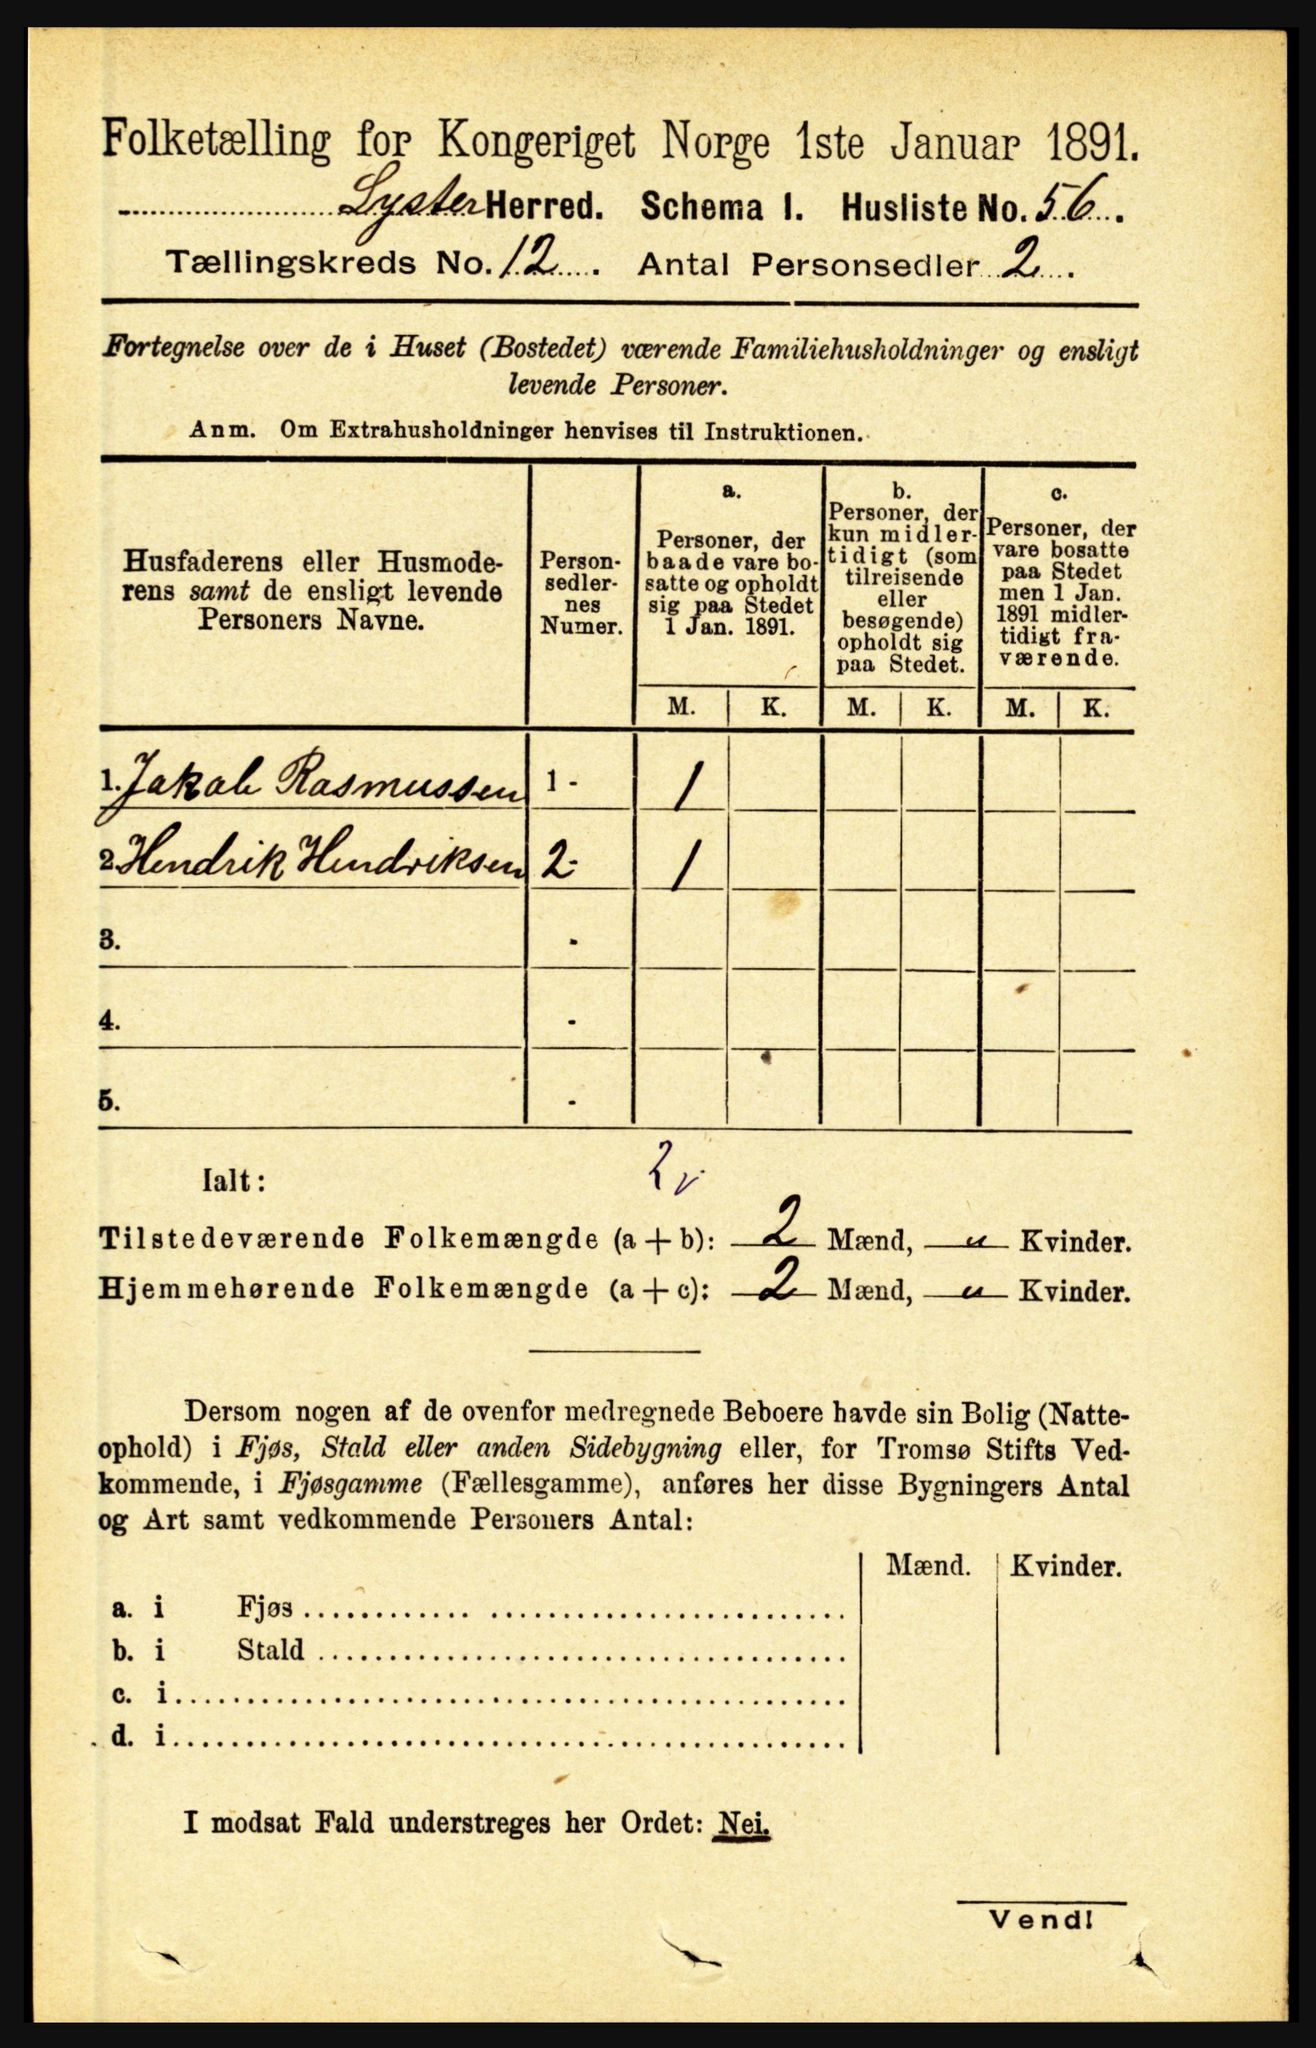 Folketælling for Kongeriget Norge 1ste Januar 1891.
Lyster Herred. Schema I. Husliste No. 56.
Tællingskreds No. 12. Antal Personsedler 2.
Fortegnelse over de i Huset (Bostedet) værende Familiehusholdninger og ensligt
levende Personer.
Anm. Om Extrahusholdninger henvises til Instruktionen.
Husfaderens eller Husmode-
rens samt de ensligt levende
Personers Navne.
Person-
sedler-
nes
Numer.
a.
Personer, der
baade vare bo-
satte og opholdt
sig paa Stedet
1 Jan. 1891.
b.
Personer, der
kun midler-
tidigt (som
tilreisende
eller
besøgende)
opholdt sig
paa Stedet.
c.
Personer, der
vare bosatte
paa Stedet
men 1 Jan.
1891 midler-
tidigt fra-
værende.
M. K. M. K. M. K.
1. Jakob Rasmussen 1 - 1
2. Hendrik Hendriksen 2 - 1
3. -
4. -
5. -
2 v
Ialt:
Tilstedeværende Folkemængde (a + b): 2 Mænd, „ Kvinder.
Hjemmehørende Folkemængde (a + c): 2 Mænd, „ Kvinder.
Dersom nogen af de ovenfor medregnede Beboere havde sin Bolig (Natte-
ophold) i Fjøs, Stald eller anden Sidebygning eller, for Tromsø Stifts Ved-
kommende, i Fjøsgamme (Fællesgamme), anføres her disse Bygningers Antal
og Art samt vedkommende Personers Antal:
Mænd. Kvinder.
a. i Fjøs
b. i Stald
c. i
d. i
I modsat Fald understreges her Ordet: Nei.
Vend!